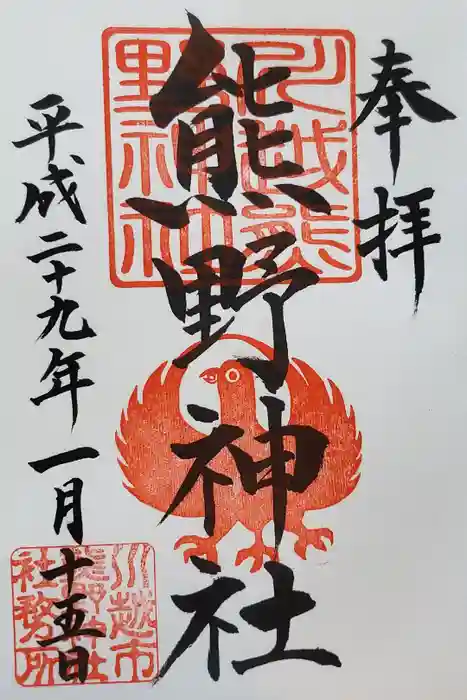 奉拝
川越熊野神社
熊野神社
平成二十九年一月十五日
川越市
熊野神社
社務所